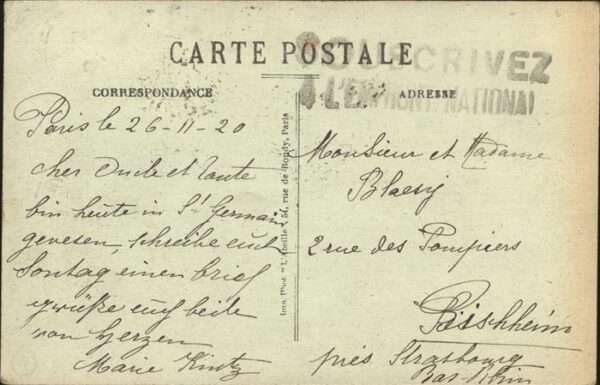 SOUSCRIVEZ
À L'EMPRUNT NATIONAL
CARTE POSTALE
CORRESPONDANCE
ADRESSE
Paris le 26-11-20
cher Oncle et Tante
bin heute in St Germain
gewesen, schreibe euch
Sontag einen brief
grüße euch beite
von Herzen
Marie Kintz
Imp. Phot "L'Abeille", 54, rue de Bondy, Paris
Monsieur et Madame
Blaesy
2 rue des Pompiers
Bischheim
prés Strasbourg
Bas-Rhin